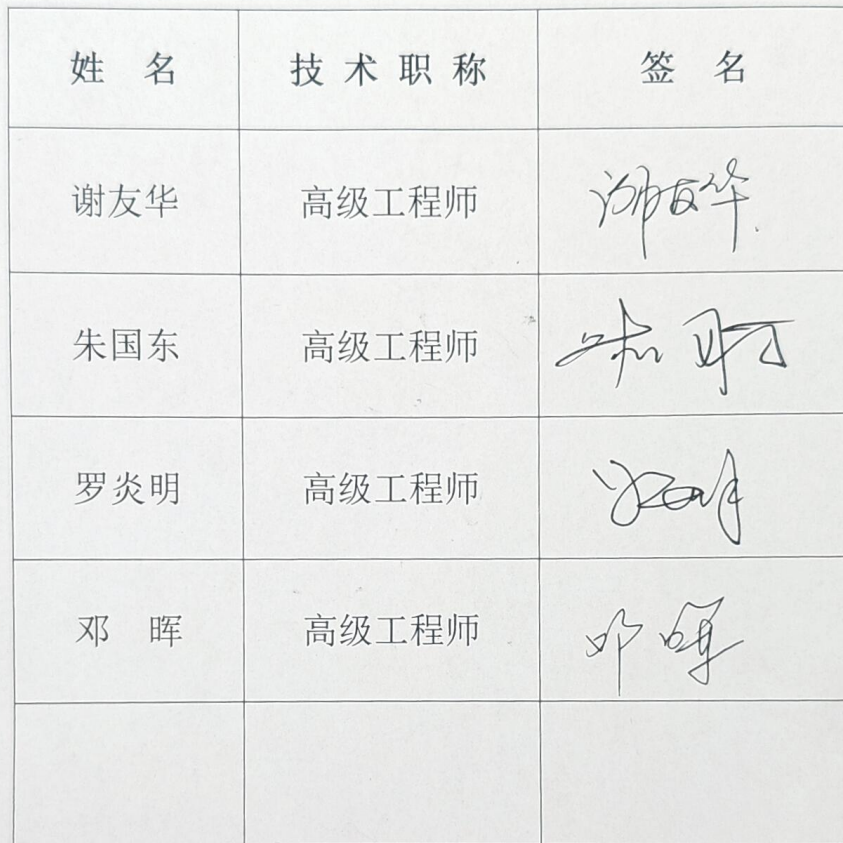 姓 名 技术职称 签 名
谢友华 高级工程师 谢友华
朱国东 高级工程师
罗炎明 高级工程师
邓 晖 高级工程师 邓晖